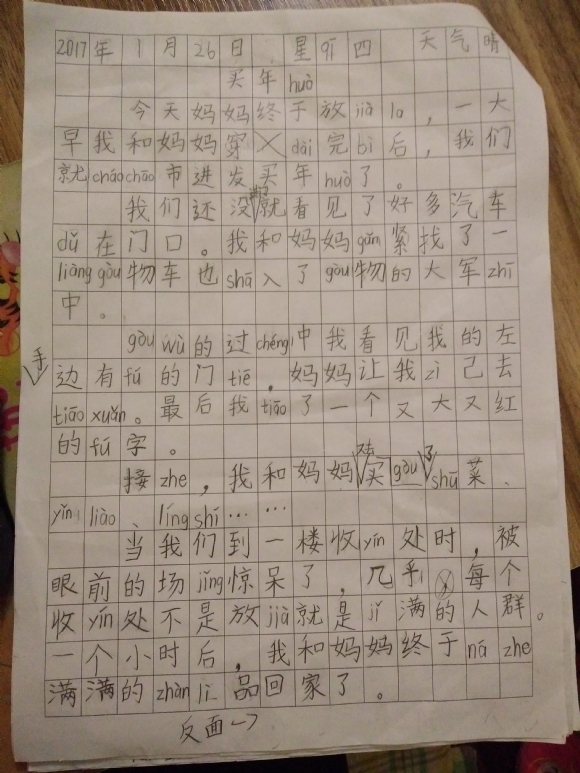 2017年1月26日 星qī四 天气晴
买年huò
今天妈妈终于放jià la，一大
早我和妈妈穿dài完bì后，我们
就cháo chāo市进发买年huò了。
我们还没就看见了好多汽车
dǔ在门口。我和妈妈gǎn紧找了一
liàng gòu物车也shā入了gòu物的大军zhī
中。
gòu wù的过chéng中我看见我的左
手
边有fú的门tiē，妈妈让我zì己去
tiāo xuǎn。最后我tiāo了一个又大又红
的fú字。
接zhe，我和妈妈买gòu了shū菜、
yǐn liào、líng shí……
当我们到一楼收yín处时，被
眼前的场jǐng惊呆了，几乎每个
收yín处不是放jià就是jǐ满的人群。
一个小时后，我和妈妈终于ná zhe
满满的zhàn lì品回家了。
反面→